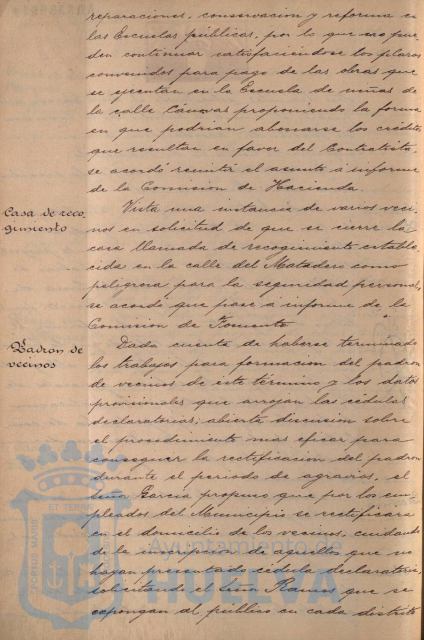 reparaciones, conservacion y reforma en
las Escuelas públicas, por lo que no pue
den continuar satisfaciendose los plazos
convenidos para pago de las obras que
se ejecutan en la Escuela de niñas de
la calle Cánovas proponiendo la forma
en que podrian abonarse los créditos
que resultan en favor del Contratista,
se acordó remitir el asunto á informe
de la Comision de Hacienda.
Casa de reco-
gimiento
Vista una instancia de varios veci-
nos en solicitud de que se cierre la
casa llamada de recogimiento estable-
cida en la calle del Matadero como
peligrosa para la seguridad personal,
se acordó que pase á informe de la
Comision de Fomento.
Padron de
vecinos
Dada cuenta de haberse terminado
los trabajos para formacion del padron
de vecinos de este término y los datos
provisionales que arrojan las cédulas
declaratorias; abierta discusion sobre
el procedimiento mas eficaz para
conseguir la rectificacion del padron
durante el periodo de agravios, el
Señor García propuso que por los em-
pleados del Municipio se rectificára
en el domicilio de los vecinos, cuidando
de la inscripcion de aquellos que no
hayan presentado cédula declaratoria,
solicitando el Señor Ramos que se
expongan al público en cada distrito
PORTUS MARIS ET TERRAE
Ayuntamiento de
HUELVA